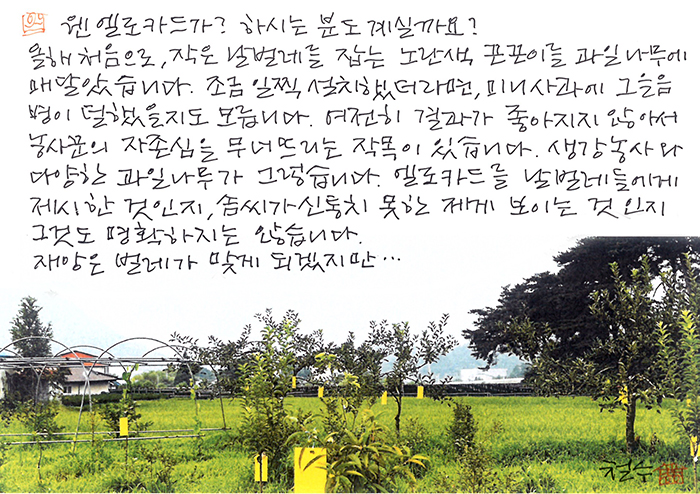 웬 옐로카드가? 하시는 분도 계실까요?
올해 처음으로, 작은 날벌레를 잡는 노란색 끈끈이를 과일나무에
매달았습니다. 조금 일찍 설치했더라면, 미니사과에 그을음
병이 덜했을지도 모릅니다. 여전히 결과가 좋아지지 않아서
농사꾼의 자존심을 무너뜨리는 작목이 있습니다. 생강농사와
다양한 과일나무가 그렇습니다. 옐로카드를 날벌레들에게
제시한 것인지, 솜씨가 신통치 못한 제게 보이는 것인지
그것도 명확하지는 않습니다.
재앙은 벌레가 맞게 되겠지만…
철수